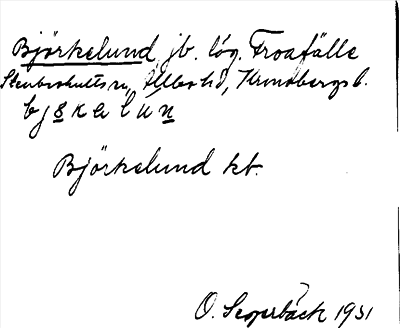 Björkelund jb. låg. Froafälle
Stenbrohults sn, Allbo hd, Kronobergs l.
bjs̲kalun̲
Björkelund kt.
O. Segerbäck 1931